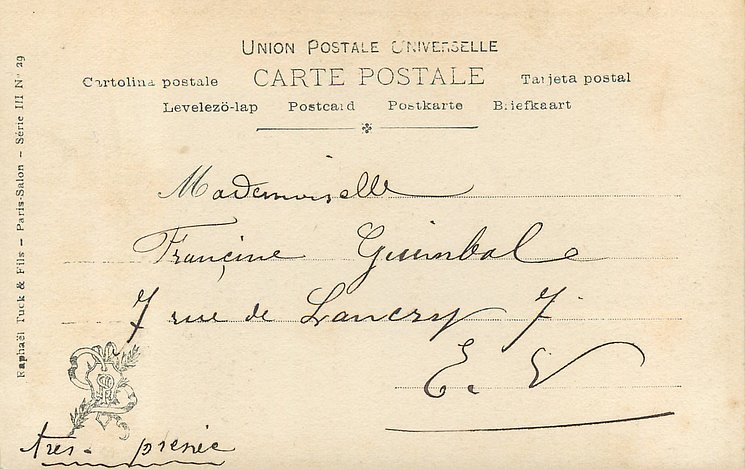 UNION POSTALE UNIVERSELLE
Cartolina postale CARTE POSTALE Tarjeta postal
Levelezö-lap Postcard Postkarte Briefkaart
Mademoiselle
Françine Guimbal
7 rue de Lancry 7.
E. V
très-
Raphaël Tuck & Fils – Paris-Salon – Série III Nº 29